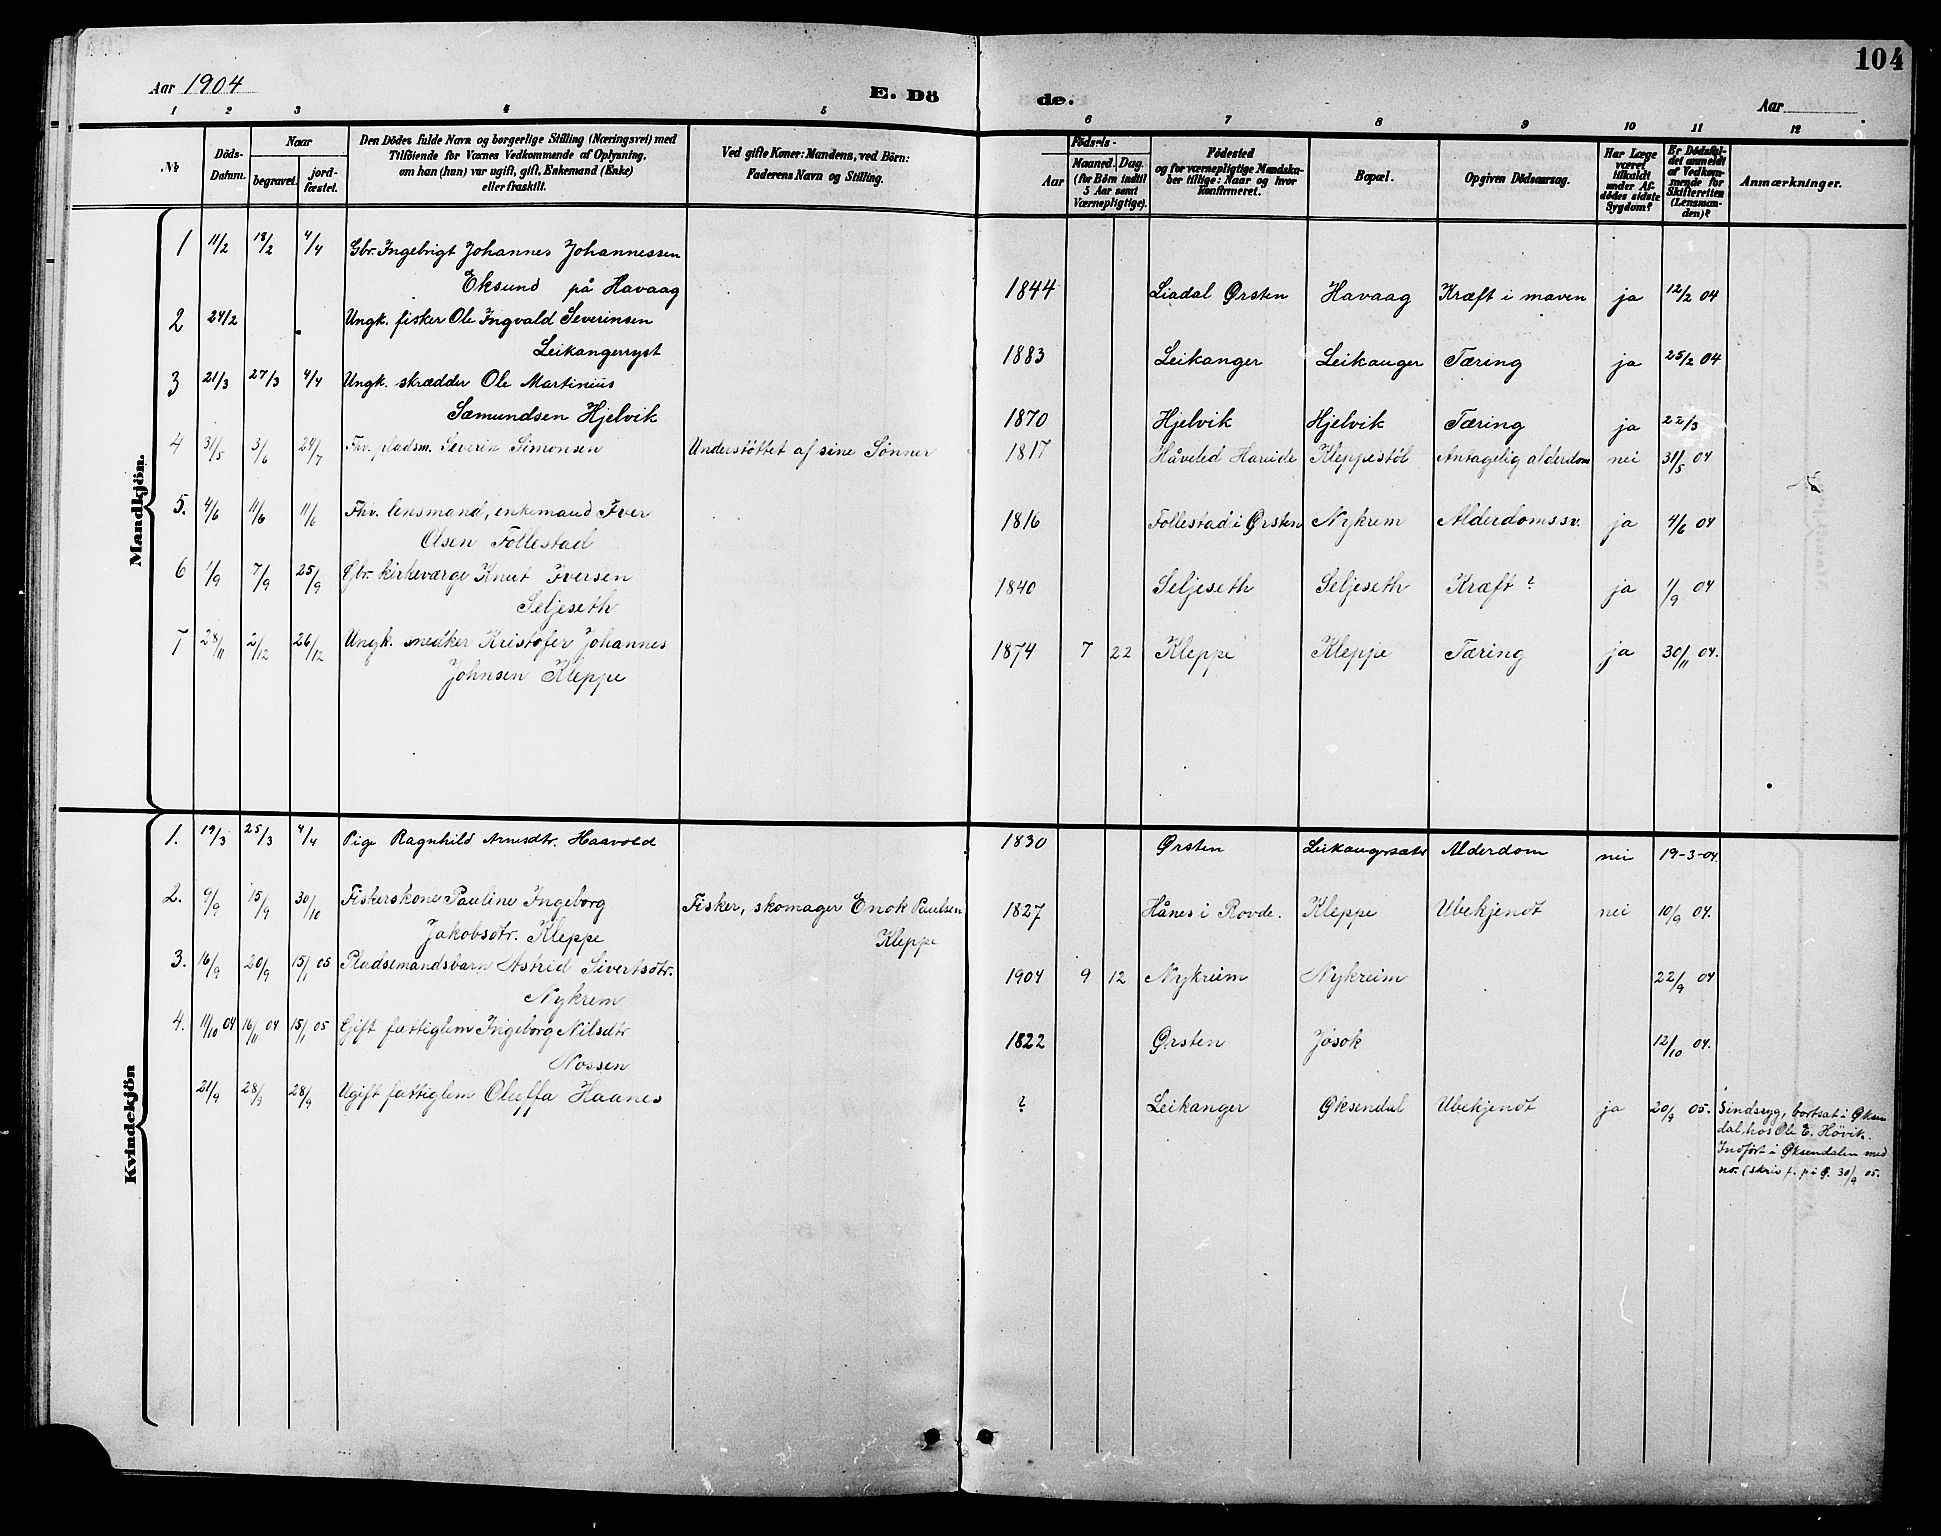 104
Aar 1904
E. Dö de.
Aar
1 2 3 4 5 6 7 8 9 10 11 12
No
Döds-Datum.
Naar
begravet.
jord-fæstet.
Den Dödes fulde Navn og borgerlige Stilling (Næringsvei) med
Tilföiende for Voxnes Vedkommende af Oplysning,
om han (hun) var ugift, gift, Enkemand (Enke)
eller fraskilt.
Ved gifte Koner: Mandens, ved Börn:
Faderens Navn og Stilling.
Födsels-
Aar
Maaned. Dag.
(for Börn indtil
5 Aar samt
Værnepligtige).
Födested
og for værnepligtige Mandska-
ber tillige: Naar og hvor
konfirmeret.
Bopæl.
Opgiven Dödsaarsag.
Har Læge
været
tilkaldt
under Af-
dödes sidste
Sygdom?
Er Dödsfal-
det anmeldt
af Vedkom-
mende for
Skifteretten
(Lensman-
den)?
Anmærkninger.
Mandkjön.
1 11/2 18/2 4/4 Gbr. Ingebrigt Johannes Johannessen
Eksund på Havaag 1844 Liadal Ørsten Havaag Kræft i maven ja 12/2 04
2 24/2 Ungk. fisker Ole Ingvald Severinsen
Leikangerryst 1883 Leikanger Leikanger Tæring ja 25/2 04
3 21/3 27/3 4/4 Ungk. skrædder Ole Martinius
Sæmundsen Hjelvik 1870 Hjelvik Hjelvik Tæring ja 22/3
4 31/5 3/6 24/7 Fhv. pladsm. Severin Simonsen Understöttet af sine Sønner 1817 Håveled Hareide Kleppestöl Antagelig alderdom nei 31/5 04
5. 4/6 11/6 11/6 Fhv. lensmand, enkemand Iver
Olsen Follestad 1816 Follestad i Ørsten Nykrem Alderdomssv. ja 4/6 04
6 1/9 7/9 25/9 Gbr. kirkeværge Knut Iversen
Seljeseth 1840 Seljeseth Seljeseth Kræft? ja 1/9 04
7 28/11 2/12 26/12 Ungk. snedker Kristofer Johannes
Johnsen Kleppe 1874 7 22 Kleppe Kleppe Tæring ja 30/11 04.
Kvindekjön
1. 19/3 25/3 4/4 Pige Ragnhild Arnesdtr. Haavold 1830 Ørsten Leikangersætr Alderdom nei 19-3-04
2. 9/9 15/9 30/10 Fiskerskone Pauline Ingeborg Fisker, skomager Enok Paulsen
Jakobsdtr. Kleppe Kleppe 1827 Hånes i Rovde. Kleppe Ubekjendt nei 10/9 04.
3. 16/9 20/9 15/1 05 Pladsemandsbarn Astrid Sivertsdtr.
Nykrem 1904 9 12 Nykreim Nykreim 22/9 04
4. 11/10 04 16/11 04 15/1 05 Gift fattiglem Ingeborg Nilsdtr
Nossen 1822 Ørsten Jösok 12/10 04.
21/9 28/9 28/9 Ugift fattiglem Oluffa Haanes ? Leikanger Øksendal Ubekjendt ja 20/9 05.
Sindssyg, bortsat i Øksen
dal hos Ole E. Hövik.
Indfört i Øksendalen med
no. (skriv f. på Ø. 30/9 05.